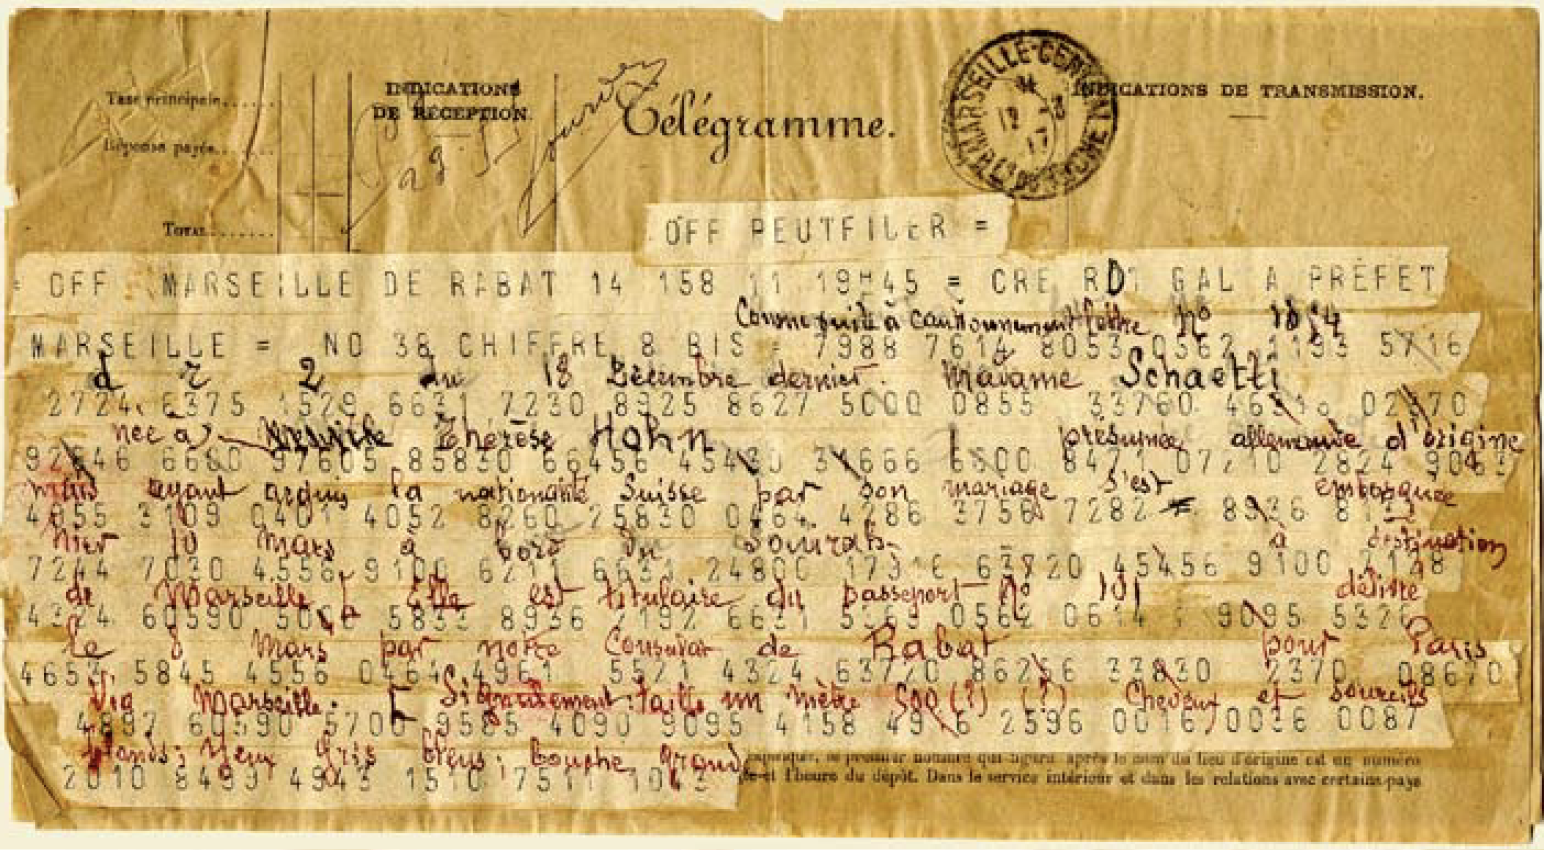 Taxe principale......
Réponse payée...
TOTAL......
INDICATIONS
DE RÉCEPTION.
Télégramme.
MARSEILLE-CENTRAL
12 - 3
17
INDICATIONS DE TRANSMISSION.
OFF PEUTFILER =
= OFF MARSEILLE DE RABAT 14 158 11 19H45 = CRE RDT GAL A PREFET
Comme suite à cautionnement lettre N°
MARSEILLE = NO 38 CHIFFRE 8 BIS = 7988 7614 8053 0562 1193 5716
d r 2 du 18 Décembre dernier. Madame Schaetti
2724 6375 1529 6631 7230 8925 8627 5000 0855 33760
née à Thérèse Hohn présumée allemande d'origine
6680 97605 85830 66456 8471 2824
mais ayant acquis la nationalité Suisse par son mariage s'est embarquée
4855 3109 0401 4052 8260 25830 0464 4286 3756 7282
hier 10 Mars à bord du à destination
7244 7030 4556 9100 6211 6631 24800 45456 9100
de Marseille. Elle est titulaire du passeport N° 101 délivré
4324 60590 5833 8936 2192 6631 0562 0614 9095 5326
le 8 Mars par notre Consulat de Rabat pour Paris
4653 5845 4556 0464 4961 5521 4324 63720 86256 33830 2370 08670
Via Marseille. Signalement: taille un mètre 500 (?) (?) Cheveux et sourcils
4897 60590 5706 9585 4090 9095 4158 2596 0016 0036 0087
blonds; yeux gris bleus; bouche grand
2010 8499 4943 1510 7511
expédier, le premier nombre qui figure après le nom du lieu d'origine est un numéro
et l'heure du dépôt. Dans le service intérieur et dans les relations avec certains pays